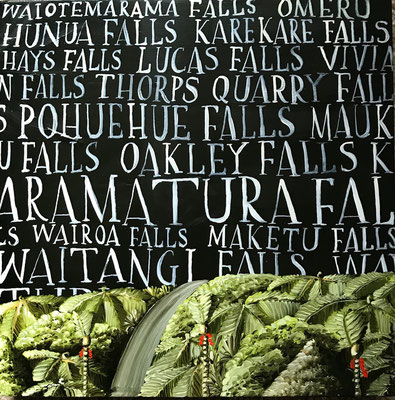 WAIOTEMARAMA FALLS OMERU
HUNUA FALLS KAREKARE FALLS
HAYS FALLS LUCAS FALLS VIVIA
N FALLS THORPS QUARRY FALL
S POHUEHUE FALLS MAUK
U FALLS OAKLEY FALLS K
ARAMATURA FAL
LS WAIROA FALLS MAKETU FALLS
WAITANGI FALLS WA